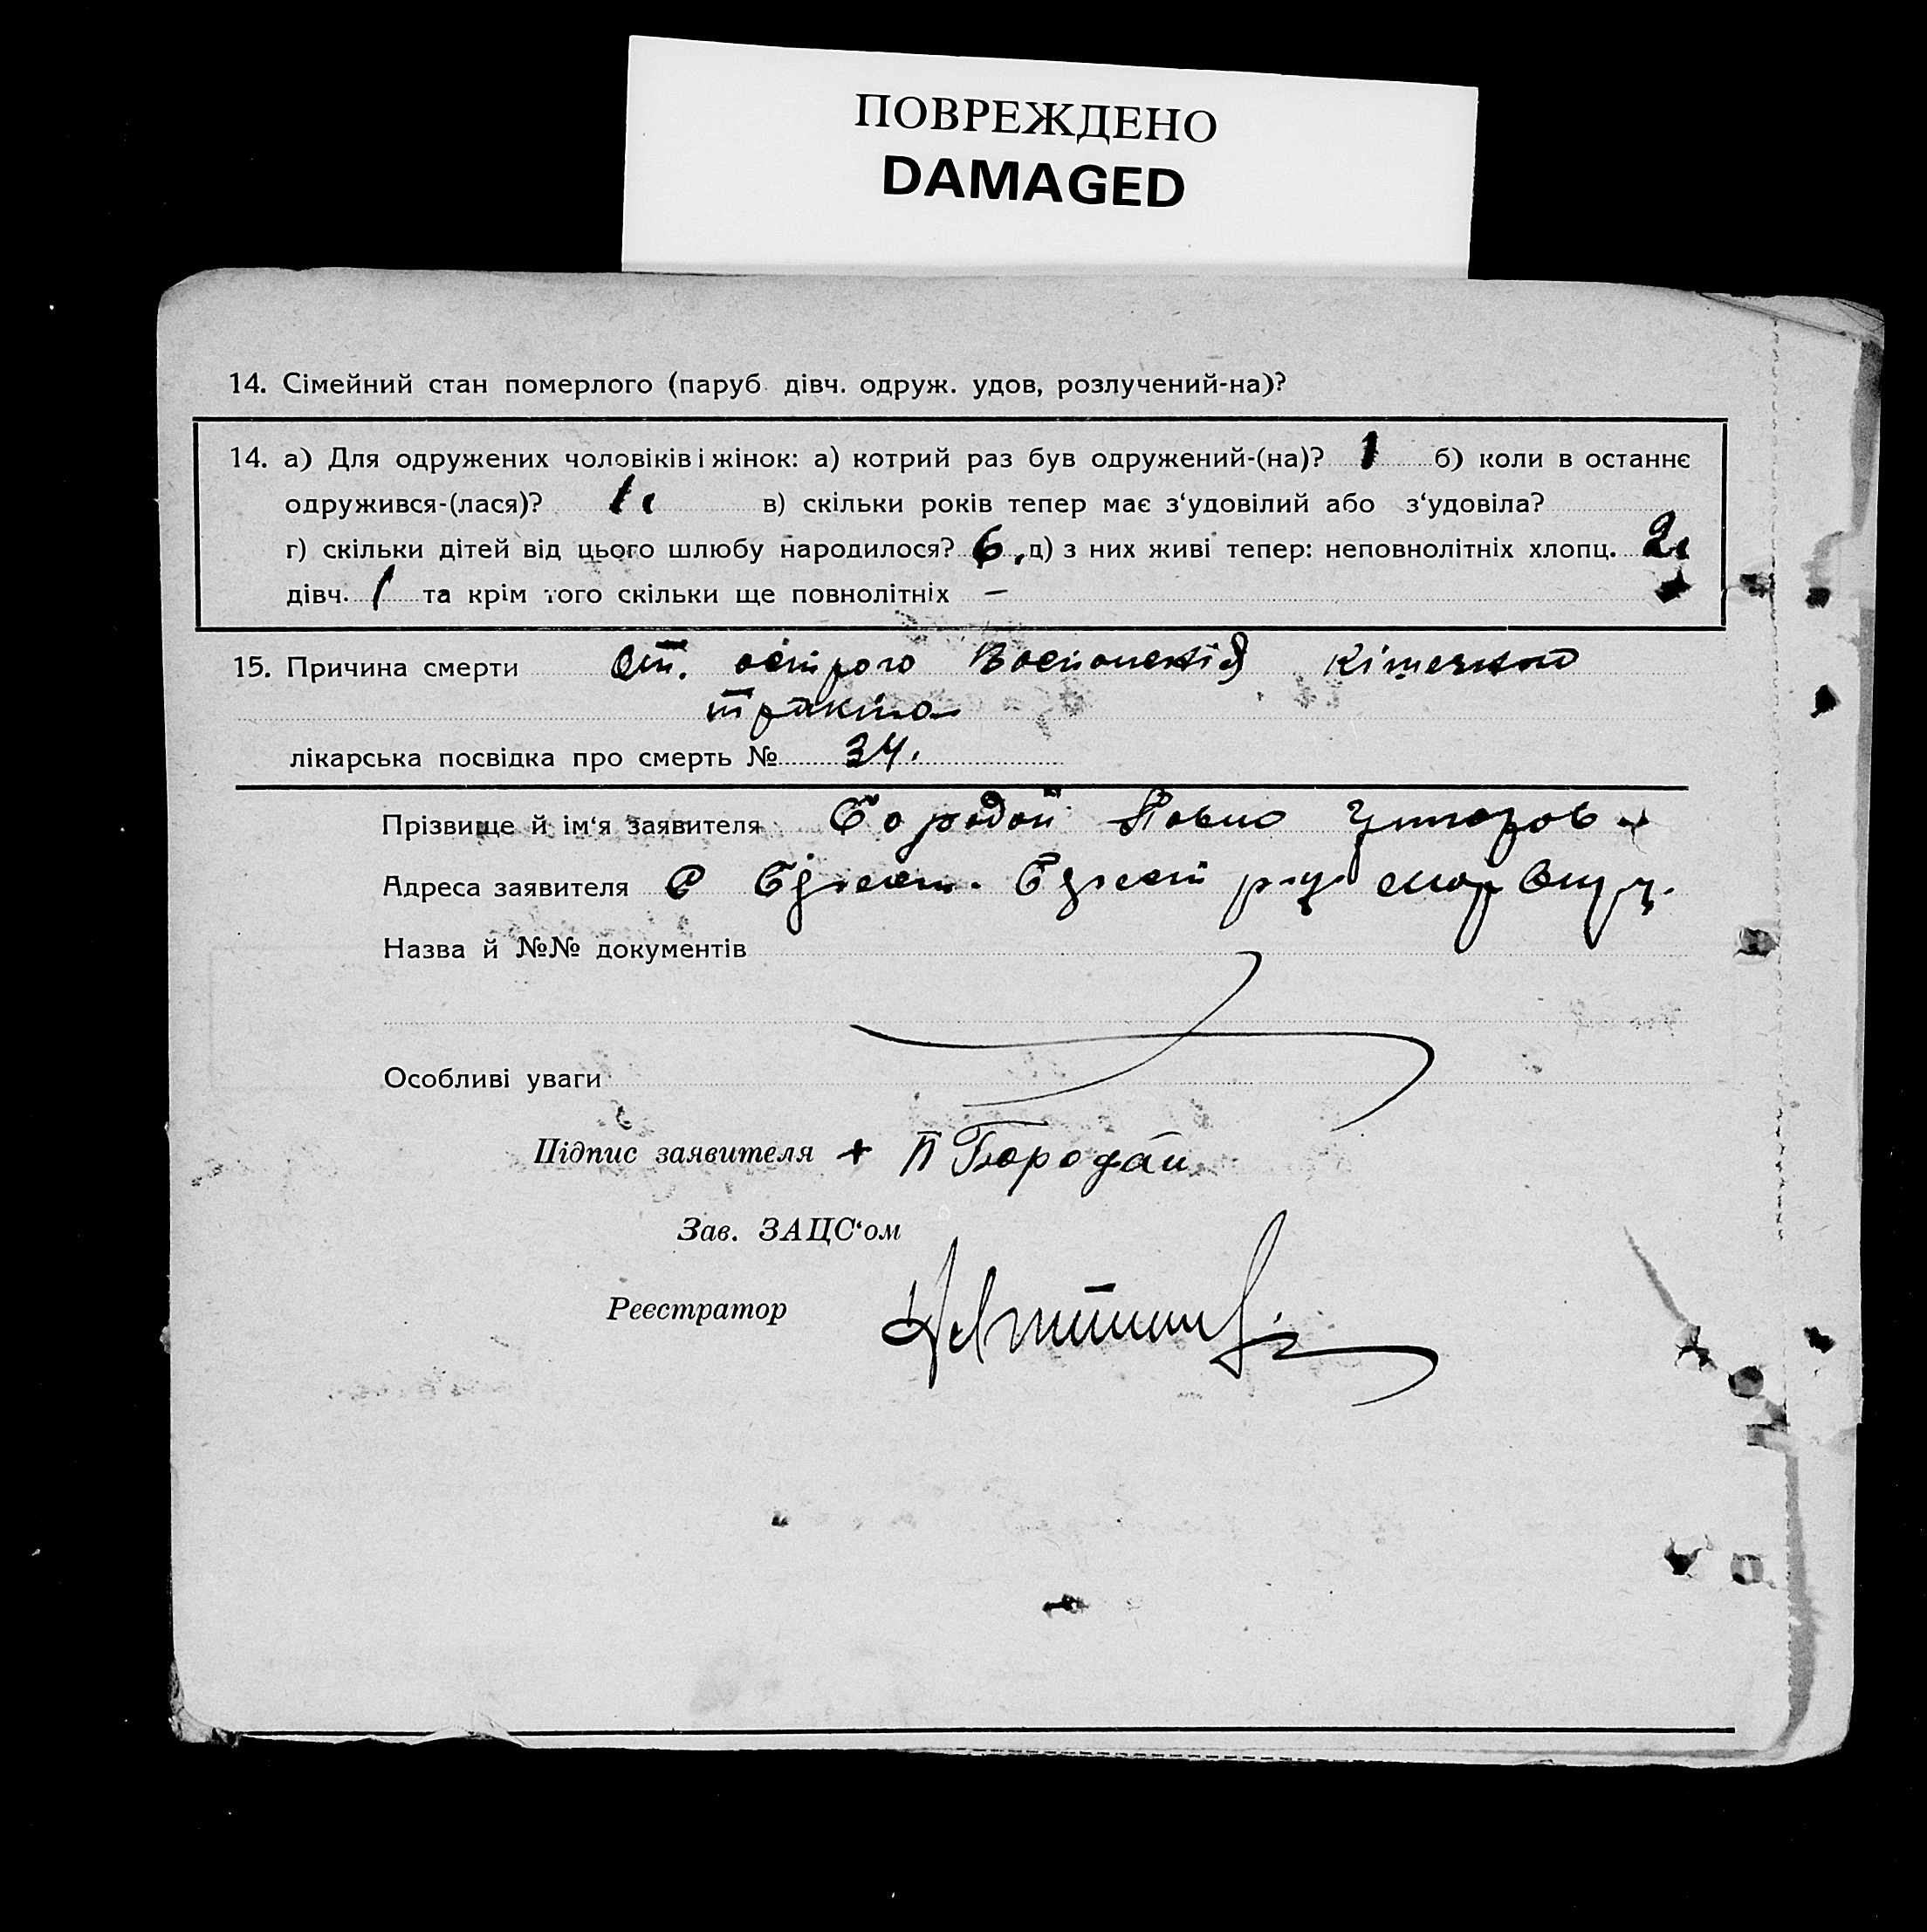 ПОВРЕЖДЕНО
DAMAGED
14. Сімейний стан померлого (паруб. дівч. одруж. удов, розлучений-на)?
14. а) Для одружених чоловіків і жінок: а) котрий раз був одружений-(на)? 1 б) коли в останнє
одружився-(лася)? 1 в) скільки років тепер має з‘удовілий або з‘удовіла?
г) скільки дітей від цього шлюбу народилося? 6. д) з них живі тепер: неповнолітніх хлопц. 2
дівч. 1 та крім того скільки ще повнолітніх —
15. Причина смерти От. острого
тракта
лікарська посвідка про смерть № 34.
Прізвище й ім‘я заявителя Бородай Павло
Адреса заявителя С
Назва й №№ документів
Особливі уваги
Підпис заявителя + П Бородай
Зав. ЗАЦС‘ом
Реєстратор